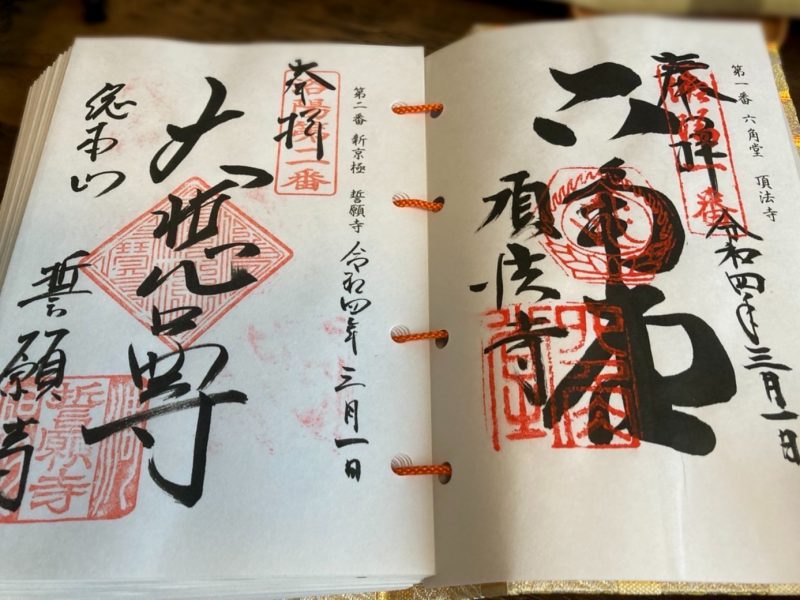 第一番 六角堂 頂法寺
奉拝
洛陽第一番
令和四年三月一日
六角堂
頂法寺
第二番 新京極 誓願寺
奉拝
洛陽第二番
令和四年三月一日
大悲尊
総本山
誓願寺
誓願寺